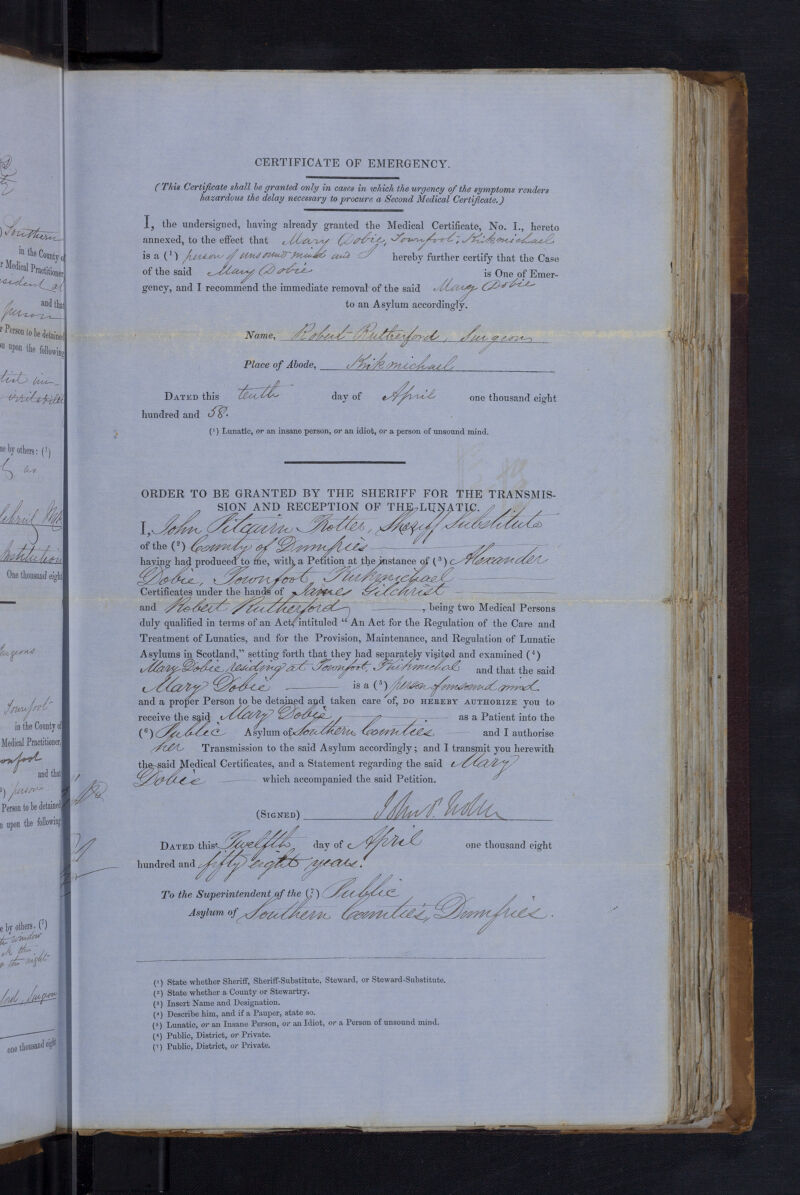 CERTIFICATE OF EMERGENCY.
(This Certificate shall be granted only in cases in which the urgency of the symptoms renders
hazardous the delay necessary to procure a Second Medical Certificate.)
I, the undersigned, having already granted the Medical Certificate, No. I., hereto
annexed, to the effect that Mary Dobie, Townfoot, Kirkmichael
is a (¹) person of unsound mind and hereby further certify that the Case
of the said Mary Dobie is One of Emer-
gency, and I recommend the immediate removal of the said Mary Dobie
to an Asylum accordingly.
Name, Robert Rutherford, Surgeon
Place of Abode, Kirkmichael
DATED this tenth day of April one thousand eight
hundred and 58.
(¹) Lunatic, or an insane person, or an idiot, or a person of unsound mind.
ORDER TO BE GRANTED BY THE SHERIFF FOR THE TRANSMIS-
SION AND RECEPTION OF THE LUNATIC.
I, John Pitcairn Trotter, Sheriff Substitute
of the (²) County of Dumfries
having had produced to me, with a Petition at the instance of (³) Alexander
Dobie, Townfoot, Kirkmichael
Certificates under the hands of James Gilchrist
and Robert Rutherford, being two Medical Persons
duly qualified in terms of an Act, intituled "An Act for the Regulation of the Care and
Treatment of Lunatics, and for the Provision, Maintenance, and Regulation of Lunatic
Asylums in Scotland," setting forth that they had separately visited and examined (⁴)
Mary Dobie residing at Townfoot, Kirkmichael and that the said
Mary Dobie is a (⁵) person of unsound mind
and a proper Person to be detained and taken care of, DO HEREBY AUTHORIZE you to
receive the said Mary Dobie as a Patient into the
(⁶) Public Asylum of Southern Counties and I authorise
her Transmission to the said Asylum accordingly; and I transmit you herewith
the said Medical Certificates, and a Statement regarding the said Mary
Dobie which accompanied the said Petition.
(SIGNED) John P. Trotter
DATED this Twelfth day of April one thousand eight
hundred and fifty eight years.
To the Superintendent of the (⁷) Public
Asylum of Southern Counties, Dumfries.
(¹) State whether Sheriff, Sheriff-Substitute, Steward, or Steward-Substitute.
(²) State whether a County or Stewartry.
(³) Insert Name and Designation.
(⁴) Describe him, and if a Pauper, state so.
(⁵) Lunatic, or an Insane Person, or an Idiot, or a Person of unsound mind.
(⁶) Public, District, or Private.
(⁷) Public, District, or Private.
Southern
in the County of
Medical Practitioner
and that
person
Person to be detained
upon the following
by others: (⁷)
Institution
One thousand eight
Townfoot
in the County of
Medical Practitioner,
and that
person
Person to be detained
upon the following
by others. (⁷)
window
the night
Surgeon
one thousand eight